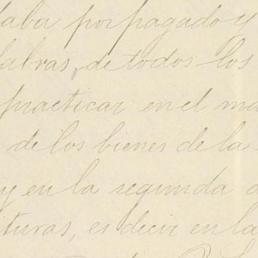 daba por pagado y
labras, de todos los
practicar en el ma
de los bienes de la
y en la segunda d
turas, es decir en la